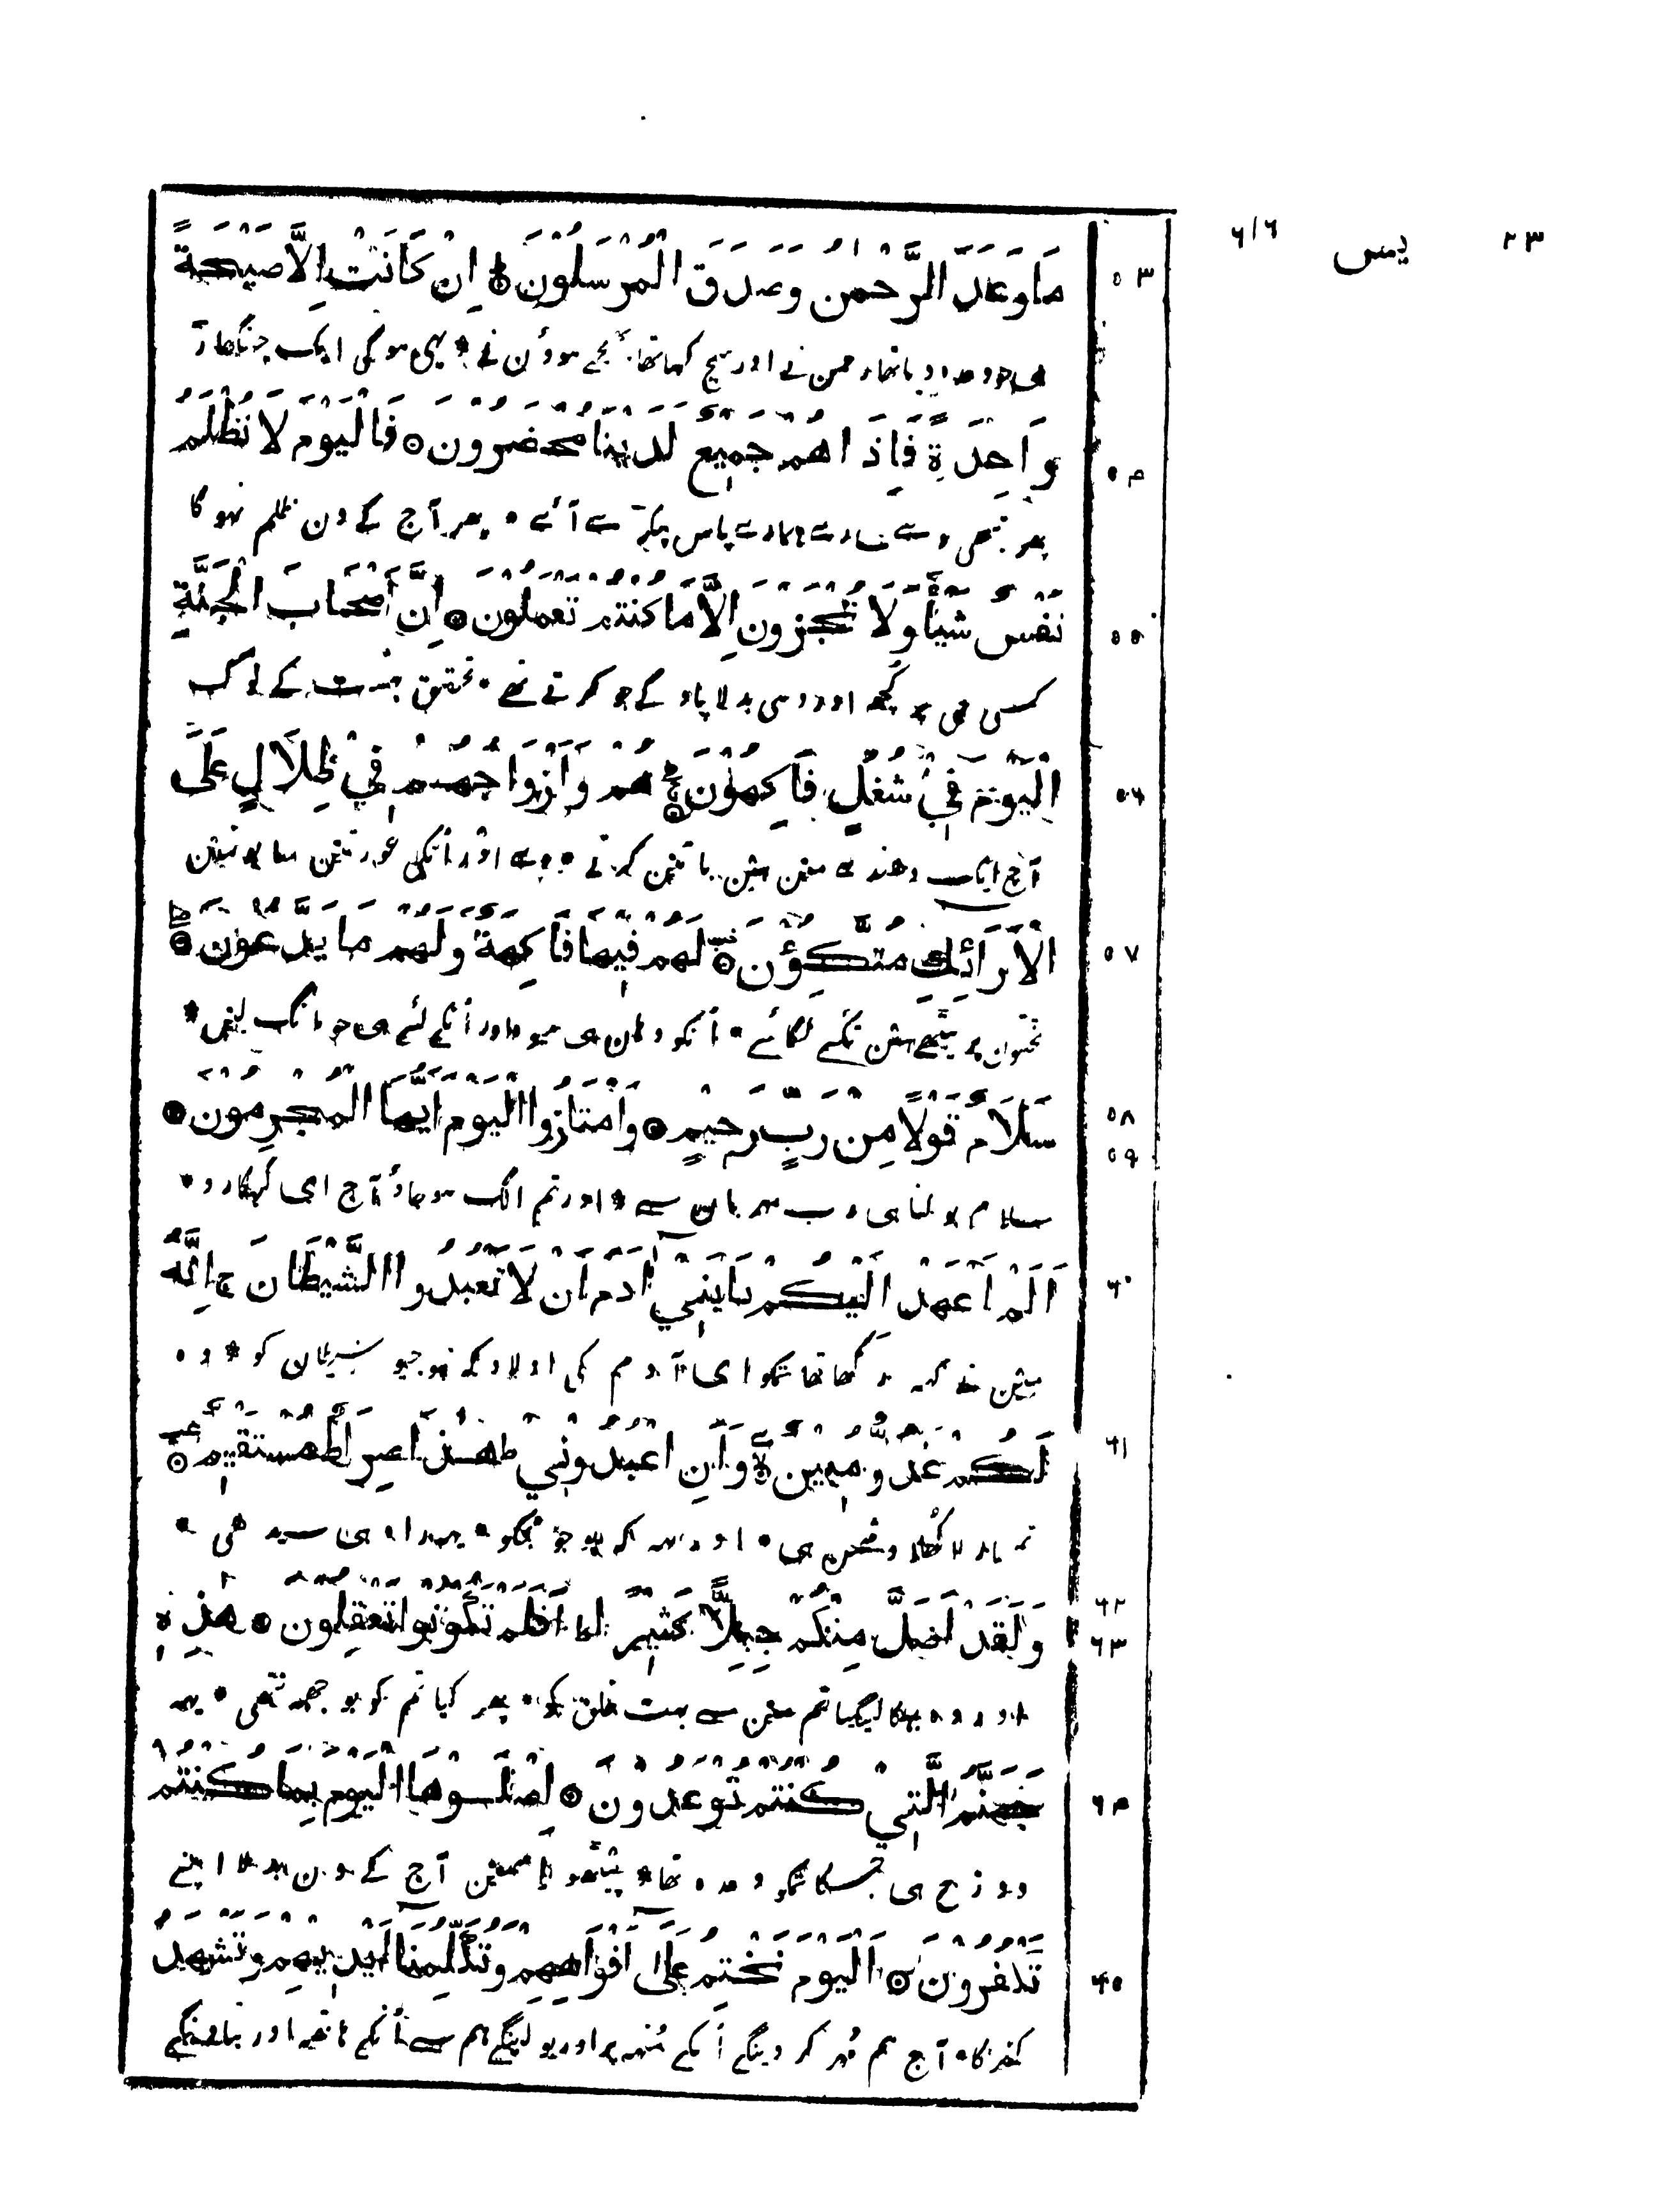 ۲۳ يس ۶۱۶
۵۳ مَا وَعَدَ الرَّحْمٰنُ وَصَدَقَ الْمُرْسَلُوْنَ ۞ اِنْ كَانَتْ اِلَّا صَيْحَةً
نے اور سچ کہا تھا بھیجے هوؤن نے * یہی هوگی ایک چنگھاڑ
۵۴ وَاحِدَةً فَاِذَاهُمْ جَمِيْعٌ لَدَيْنَا مُحْضَرُوْنَ ۞ فَالْيَوْمَ لَا تُظْلَمُ
پھر تبھی وے سارے همارے پاس پکڑے آئے * پھر آج کے دن ظلم نہوگا
۵۵ نَفْسٌ شَيْأً وَلَا تُجْزَوْنَ اِلَّا مَا كُنْتُمْ تَعْمَلُوْنَ ۞ اِنَّ اَصْحَابَ الْجَنَّةِ
کسی جی پر کچھ اور وهی بدلا پاوگے جو کرتے تھے * تحقیق بہشت کے لوگ
۵۶ الْيَوْمَ فِيْ شُغُلٍ فَاكِهُوْنَ ۞ هُمْ وَاَزْوَاجُهُمْ فِيْ ظِلَالٍ عَلَى
آج ایک دهندے مین هین باتین کرتے * وے اور اُنکی عورتین سایونمین
۵۷ الْاَرَآئِكِ مُتَّكِؤُنَ ۞ لَهُمْ فِيْهَا فَاكِهَةٌ وَلَهُمْ مَا يَدَّعُوْنَ ۞
تختون پر بیٹھے هین تکیے لگائے * اُنکو وهان هی میوه اور اُنکے لئے هی جو مانگ لین *
۵۸ ۵۹ سَلَامٌ قَوْلًا مِنْ رَبٍّ رَحِيْمٍ ۞ وَامْتَازُوا الْيَوْمَ اَيُّهَا الْمُجْرِمُوْنَ ۞
سلام بولنا هی رب مهربان سے * اور تم الگ هو جاؤ آج ای گنہگارو *
۶۰ اَلَمْ اَعْهَدْ اِلَيْكُمْ يَا بَنِيْ اٰدَمَ اَنْ لَا تَعْبُدُوا الشَّيْطَانَ ج اِنَّهُ
مین نے کہہ رکھا تھا تمکو ای آدم کی اولاد کہ نپوجیو شیطان کو * وه
۶۱ لَكُمْ عَدُوٌّ مُبِيْنٌ ۞ وَاَنِ اعْبُدُوْنِيْ ط هٰذَا صِرَاطٌ مُسْتَقِيْمٌ ۞
تمهارا کُھلا دشمن هی * اور یہہ کہ پوجو مجکو * یہہ راه هی سیدهی *
۶۲ ۶۳ وَلَقَدْ اَضَلَّ مِنْكُمْ جِبِلًّا كَثِيْرًا ط اَفَلَمْ تَكُوْنُوْا تَعْقِلُوْنَ ۞ هٰذِهٖ
اور وه بہکا لیگیا تم مین سے بہت خلق کو * پھر کیا تم کو بوجھہ نتھی * یہہ
۶۴ جَهَنَّمُ الَّتِيْ كُنْتُمْ تُوْعَدُوْنَ ۞ اِصْلَوْهَا الْيَوْمَ بِمَا كُنْتُمْ
دوزخ هی جسکا تمکو وعده تھا * پیٹھو اسمین آج کے دن بدلا اپنے
۶۵ تَكْفُرُوْنَ ۞ اَلْيَوْمَ نَخْتِمُ عَلٰى اَفْوَاهِهِمْ وَتُكَلِّمُنَا اَيْدِيْهِمْ وَتَشْهَدُ
کفر کا * آج هم مُهر کر دینگے اُنکے مُنہہ پر اور بولینگے هم سے اُنکے هاتھہ اور بتاوینگے